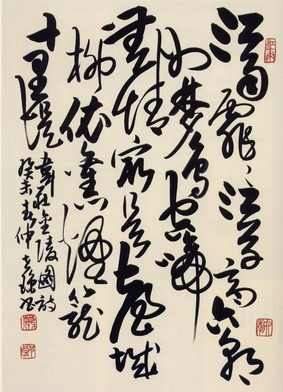 江雨霏〻江草齊六朝
如夢鳥空啼
無情最是臺城
柳依舊煙籠
十里堤
韋莊金陵圖詩
癸未春仲